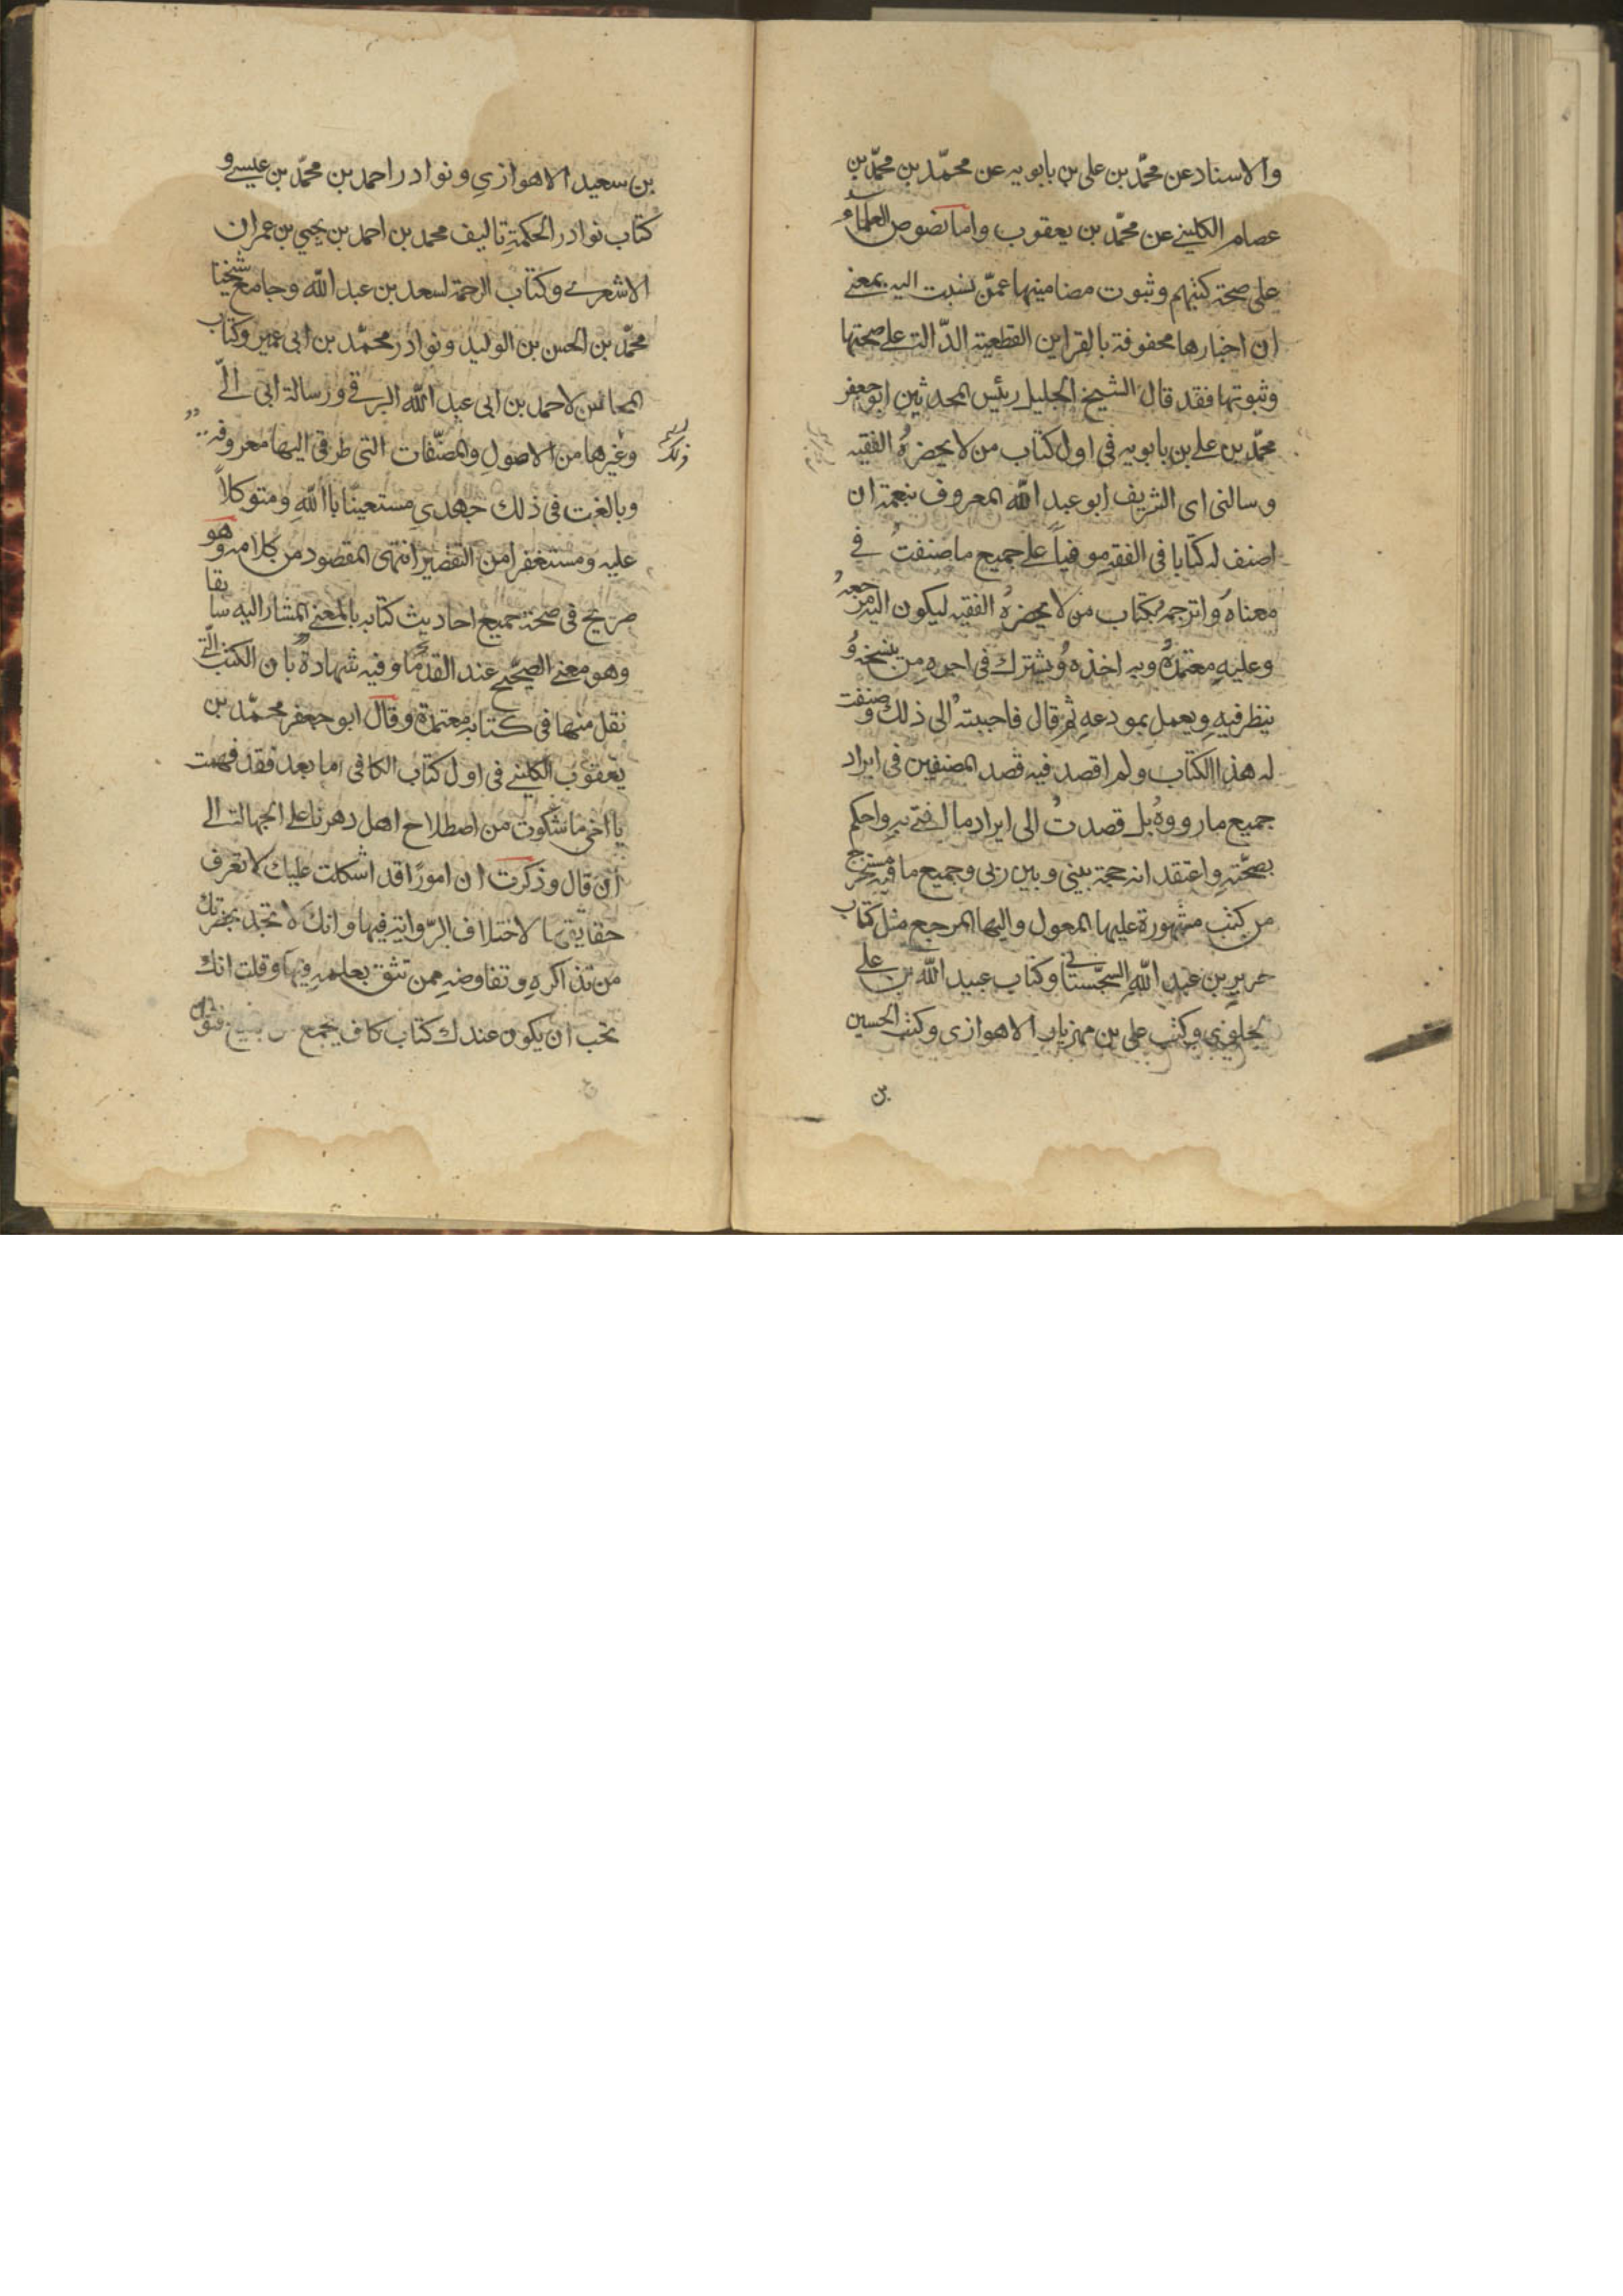 والاسناد عن محمّد بن على بن بابويه عن محمّد بن محمّد بن
عصام الكلينے عن محمّد بن يعقوب واما نصوص العلماء
على صحة كتبهم وثبوت مضامينها عمّن نسبت اليه بمعنے
ان اخبارها محفوفة بالقراين القطعية الدّالة على صحتها
وثبوتها فقد قال الشيخ الجليل رئيس المحدثين ابو جعفر
محمّد بن على بن بابويه فى اول كتاب من لا يحضرهُ الفقيه
وسالنى اى الشريف ابو عبد اللّه المعروف بنعمة ان
اصنف له كتابا فى الفقهِ موفياً على جميع ما صنفتُ فے
معناهُ واترجمهُ بكتاب من لا يحضرهُ الفقيه ليكون اليه مرجعهُ
وعليهِ معتمدهُ وبه اخذهُ ويشترك فى اجرهِ من ينسخهُ و
ينظر فيهِ ويعمل بمودعهِ ثم قال فاجبتهُ الى ذلك وصنفت
له هذا الكتاب ولم اقصد فيه قصد المصنفين فى ايراد
جميع ما رووهُ بل قصدتُ الى ايراد ما افتے بهِ واحكم
بصحّتهِ واعتقد انه حجة بينى وبين ربى وجميع ما فيهِ مستخرج
من كتب مشهورة عليها المعول واليها المرجع مثل كتاب
حريز بن عبد اللّه السجستانے وكتاب عبيد اللّه بن على
الحلبى وكتب على بن مهزيار الاهوازى وكتب الحسين
بن
بن سعيد الاهوازي ونوادر احمد بن محمّد بن عيسے و
كتاب نوادر الحكمةِ تاليف محمد بن احمد بن يحيي بن عمران
الاشعرے وكتاب الرحمة لسعد بن عبد اللّه وجامع شيخنا
محمّد بن الحسن بن الوليد ونوادر محمّد بن ابى عمير وكتاب
المحاسن لاحمد بن ابى عبد اللّه البرقے ورسالة ابى الّے
وغيرها من الاصول والمصنّفات التى طرقى اليها معروفه
وبالغت فى ذلك جهدي مستعينًا باللّهِ ومتوكلاً
عليه ومستغفرا من التقصير انتهى المقصود من كلامه وهو
صريح فى صحة جميع احاديث كتابه بالمعنے المشار اليه سابقا
وهو معنے الصحيح عند القدما وفيه شهادة بان الكتب الّتے
نقل منها فى كتابهِ معتمدة وقال ابو جعفر محمّد بن
يعقوب الكلينے فى اول كتاب الكافى اما بعد فقد فهمت
يا اخى ما شكوت من اصطلاح اهل دهرنا على الجهالة الى
ان قال وذكرت ان امورًا قد اشكلت عليك لا تعرف
حقايقها لاختلاف الرّوايةِ فيها وانك لا تجد بحضرتك
من تذاكرهِ وتفاوضهِ ممن تثق بعلمهِ فيها وقلت انك
تحب ان يكون عندك كتاب كاف يجمع